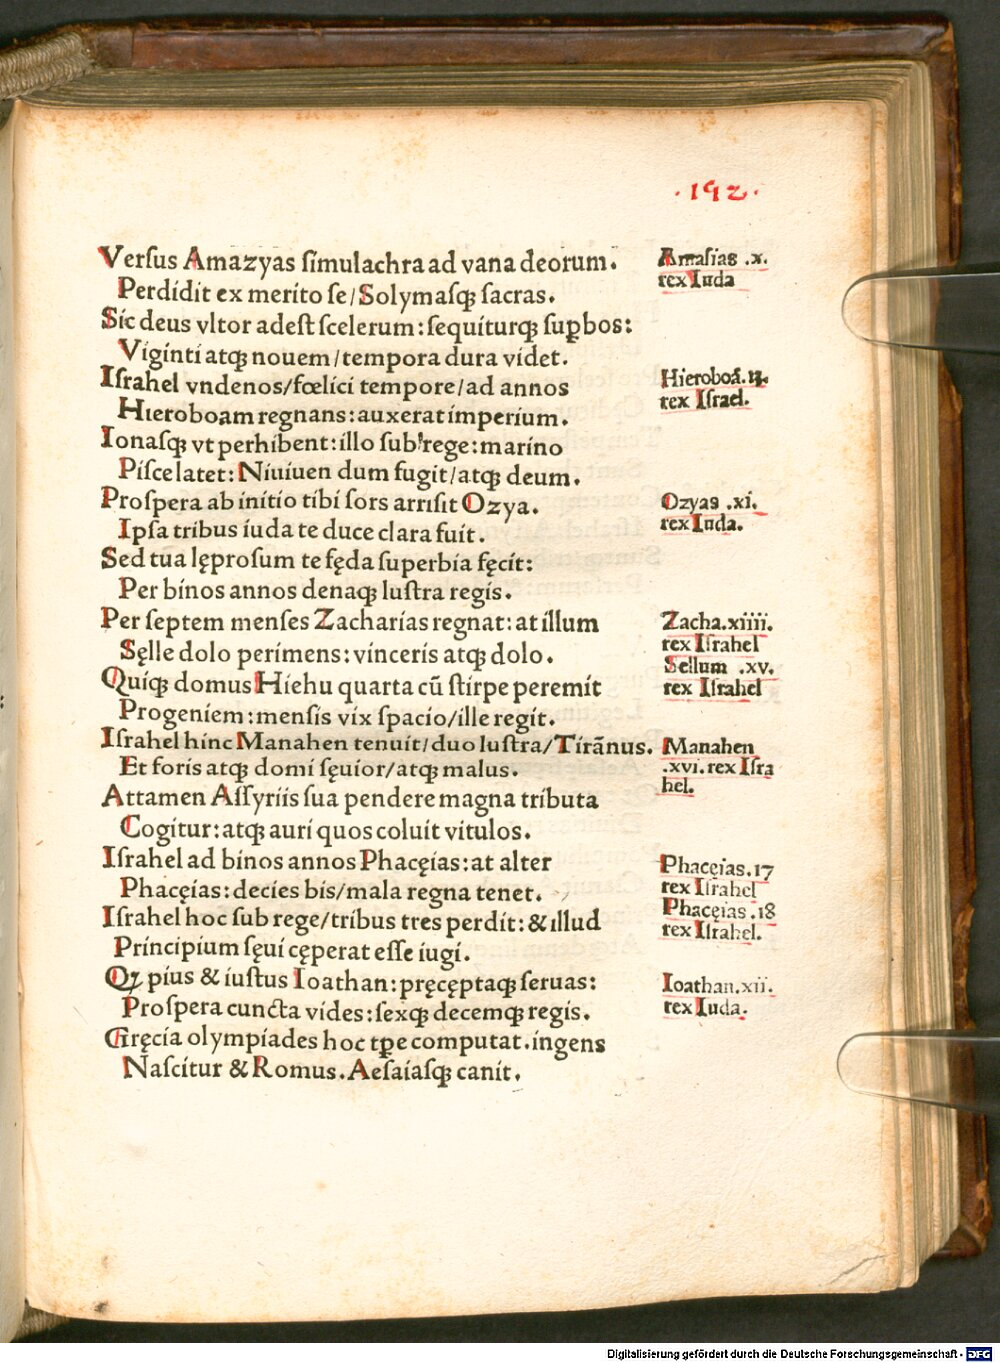 .192.
Verſus Amazyas ſimulachra ad vana deorum.
Perdidit ex merito ſe/Solymaſqꝫ ſacras.
Sic deus vltor adeſt ſcelerum:ſequiturqꝫ ſuꝑbos:
Viginti atqꝫ nouem/tempora dura videt.
Iſrahel vndenos/fœlici tempore/ad annos
Hieroboam regnans:auxerat imperium.
Ionaſqꝫ vt perhibent:illo ſub rege:marino
Piſce latet:Niuiuen dum fugit/atqꝫ deum.
Proſpera ab initio tibi ſors arriſit Ozya.
Ipſa tribus iuda te duce clara fuit.
Sed tua lęproſum te fęda ſuperbia fęcit:
Per binos annos denaqꝫ luſtra regis.
Per ſeptem menſes Zacharias regnat:at illum
Sęlle dolo perimens:vinceris atqꝫ dolo.
Quiqꝫ domus Hiehu quarta cū ſtirpe peremit
Progeniem:menſis vix ſpacio/ille regit.
Iſrahel hinc Manahen tenuit/duo luſtra/Tirānus.
Et foris atqꝫ domi ſęuior/atqꝫ malus.
Attamen Aſſyriis ſua pendere magna tributa
Cogitur:atqꝫ auri quos coluit vitulos.
Iſrahel ad binos annos Phacęias:at alter
Phacęias:decies bis/mala regna tenet.
Iſrahel hoc ſub rege/tribus tres perdit:& illud
Principium ſęui cęperat eſſe iugi.
Qꝫ pius & iuſtus Ioathan:pręcęptaqꝫ ſeruas:
Proſpera cuncta vides:ſexqꝫ decemqꝫ regis.
Gręcia olympiades hoc tꝑe computat.ingens
Naſcitur & Romus.Aeſaiaſqꝫ canit.
Amaſias .x.
rex Iuda
Hieroboā.
rex Iſrael.
Ozyas .xi.
rex Iuda.
Zacha.xiiii.
rex Iſrahel
Sellum .xv.
rex Iſrahel
Manahen
.xvi.rex Iſra
hel.
Phacęias.17
rex Iſrahel
Phacęias.18
rex Iſrahel.
Ioathan.xii.
rex Iuda.
Digitalisierung gefördert durch die Deutsche Forschungsgemeinschaft - DFG